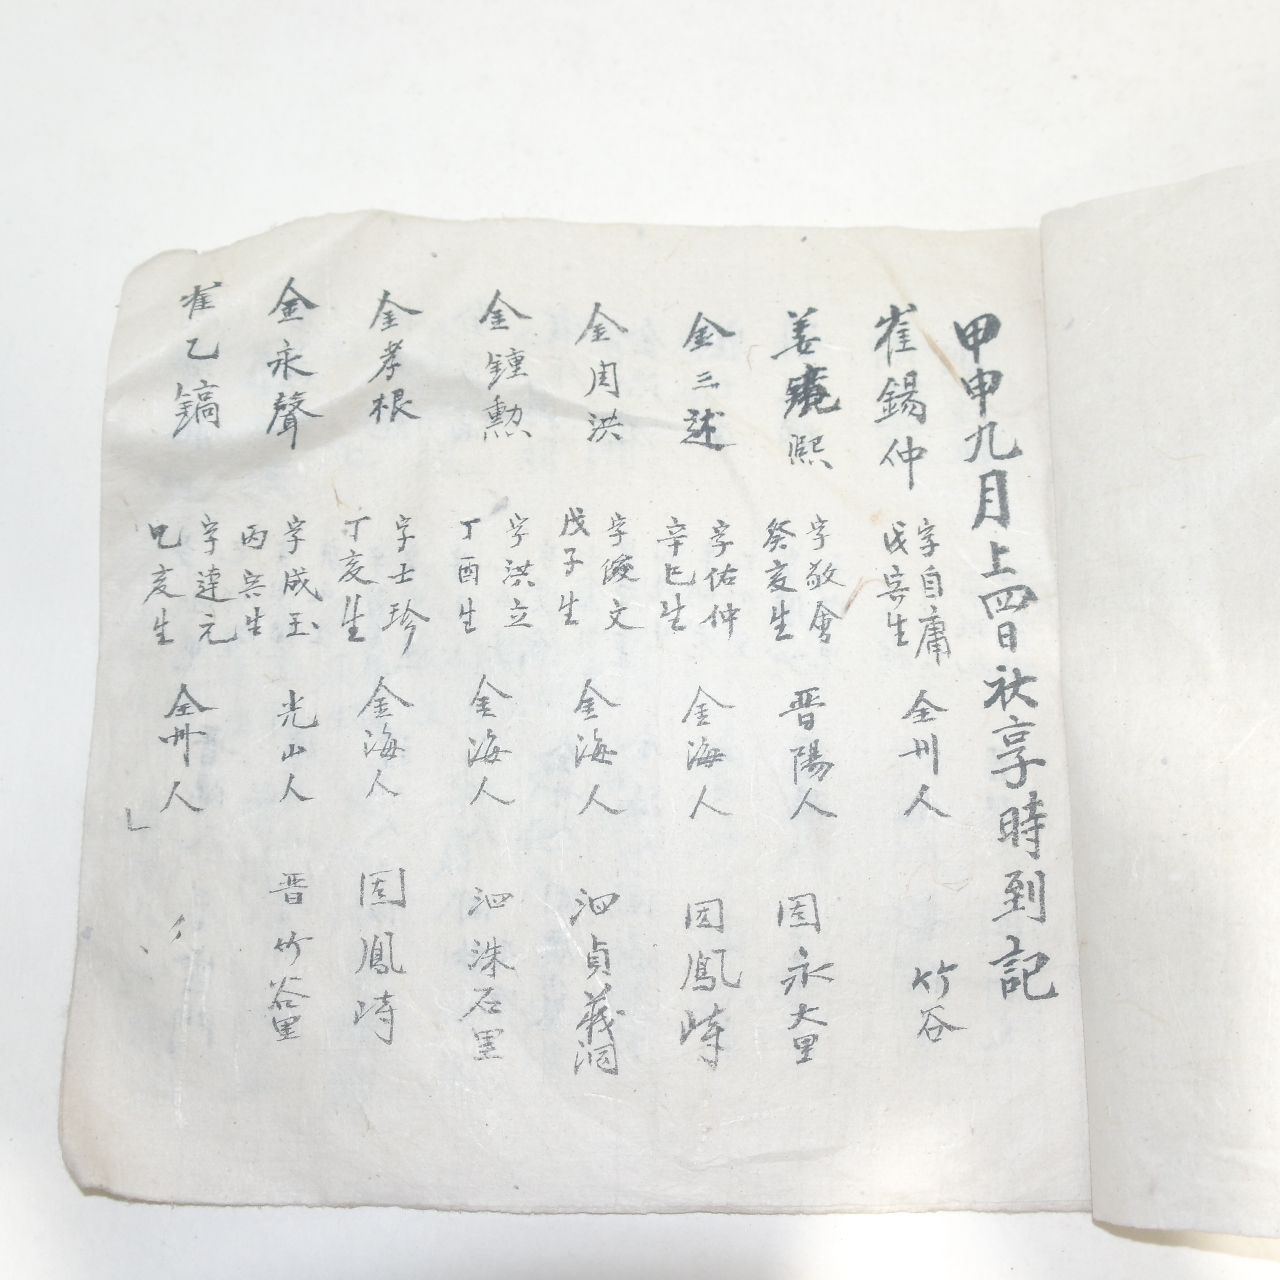 甲申九月上四日秋享時到記
崔錫仲 字自庸 戊寅生 全州人 竹谷
姜熙 字敬會 癸亥生 晋陽人 固永大里
金三述 字佑仲 辛巳生 金海人 固鳳峙
金周洪 字俊文 戊子生 金海人 泗貞義洞
金鍾勳 字洪立 丁酉生 金海人 泗洙石里
金孝根 字士珍 丁亥生 金海人 固鳳峙
金永聲 字成玉 丙寅生 光山人 晋竹谷里
崔乙鎬 字達元 乙亥生 全州人